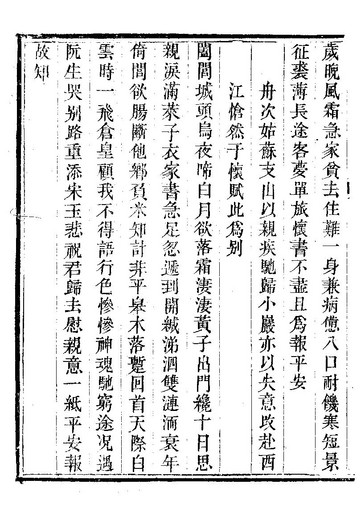 歲晚風霜急家貧去住難一身兼病憊八口耐饑寒短景
征裘薄長途客夢單旅懷書不盡且爲報平安
舟次姑蘇支山以親疾馳歸小巖亦以失意改赴西
江愴然于懷賦此爲別
闔閭城頭烏夜啼白月欲落霜淒淒黃子出門纔十日思
親淚滿萊子衣家書急足忽遞到開緘涕泗雙漣洏衰年
倚閭欲腸斷他鄉負米知計非平皋木落蹔回首天際白
雲時一飛倉皇顧我不得語行色慘慘神魂馳窮途況遇
阮生哭別路重添宋玉悲祝君歸去慰親意一紙平安報
故知